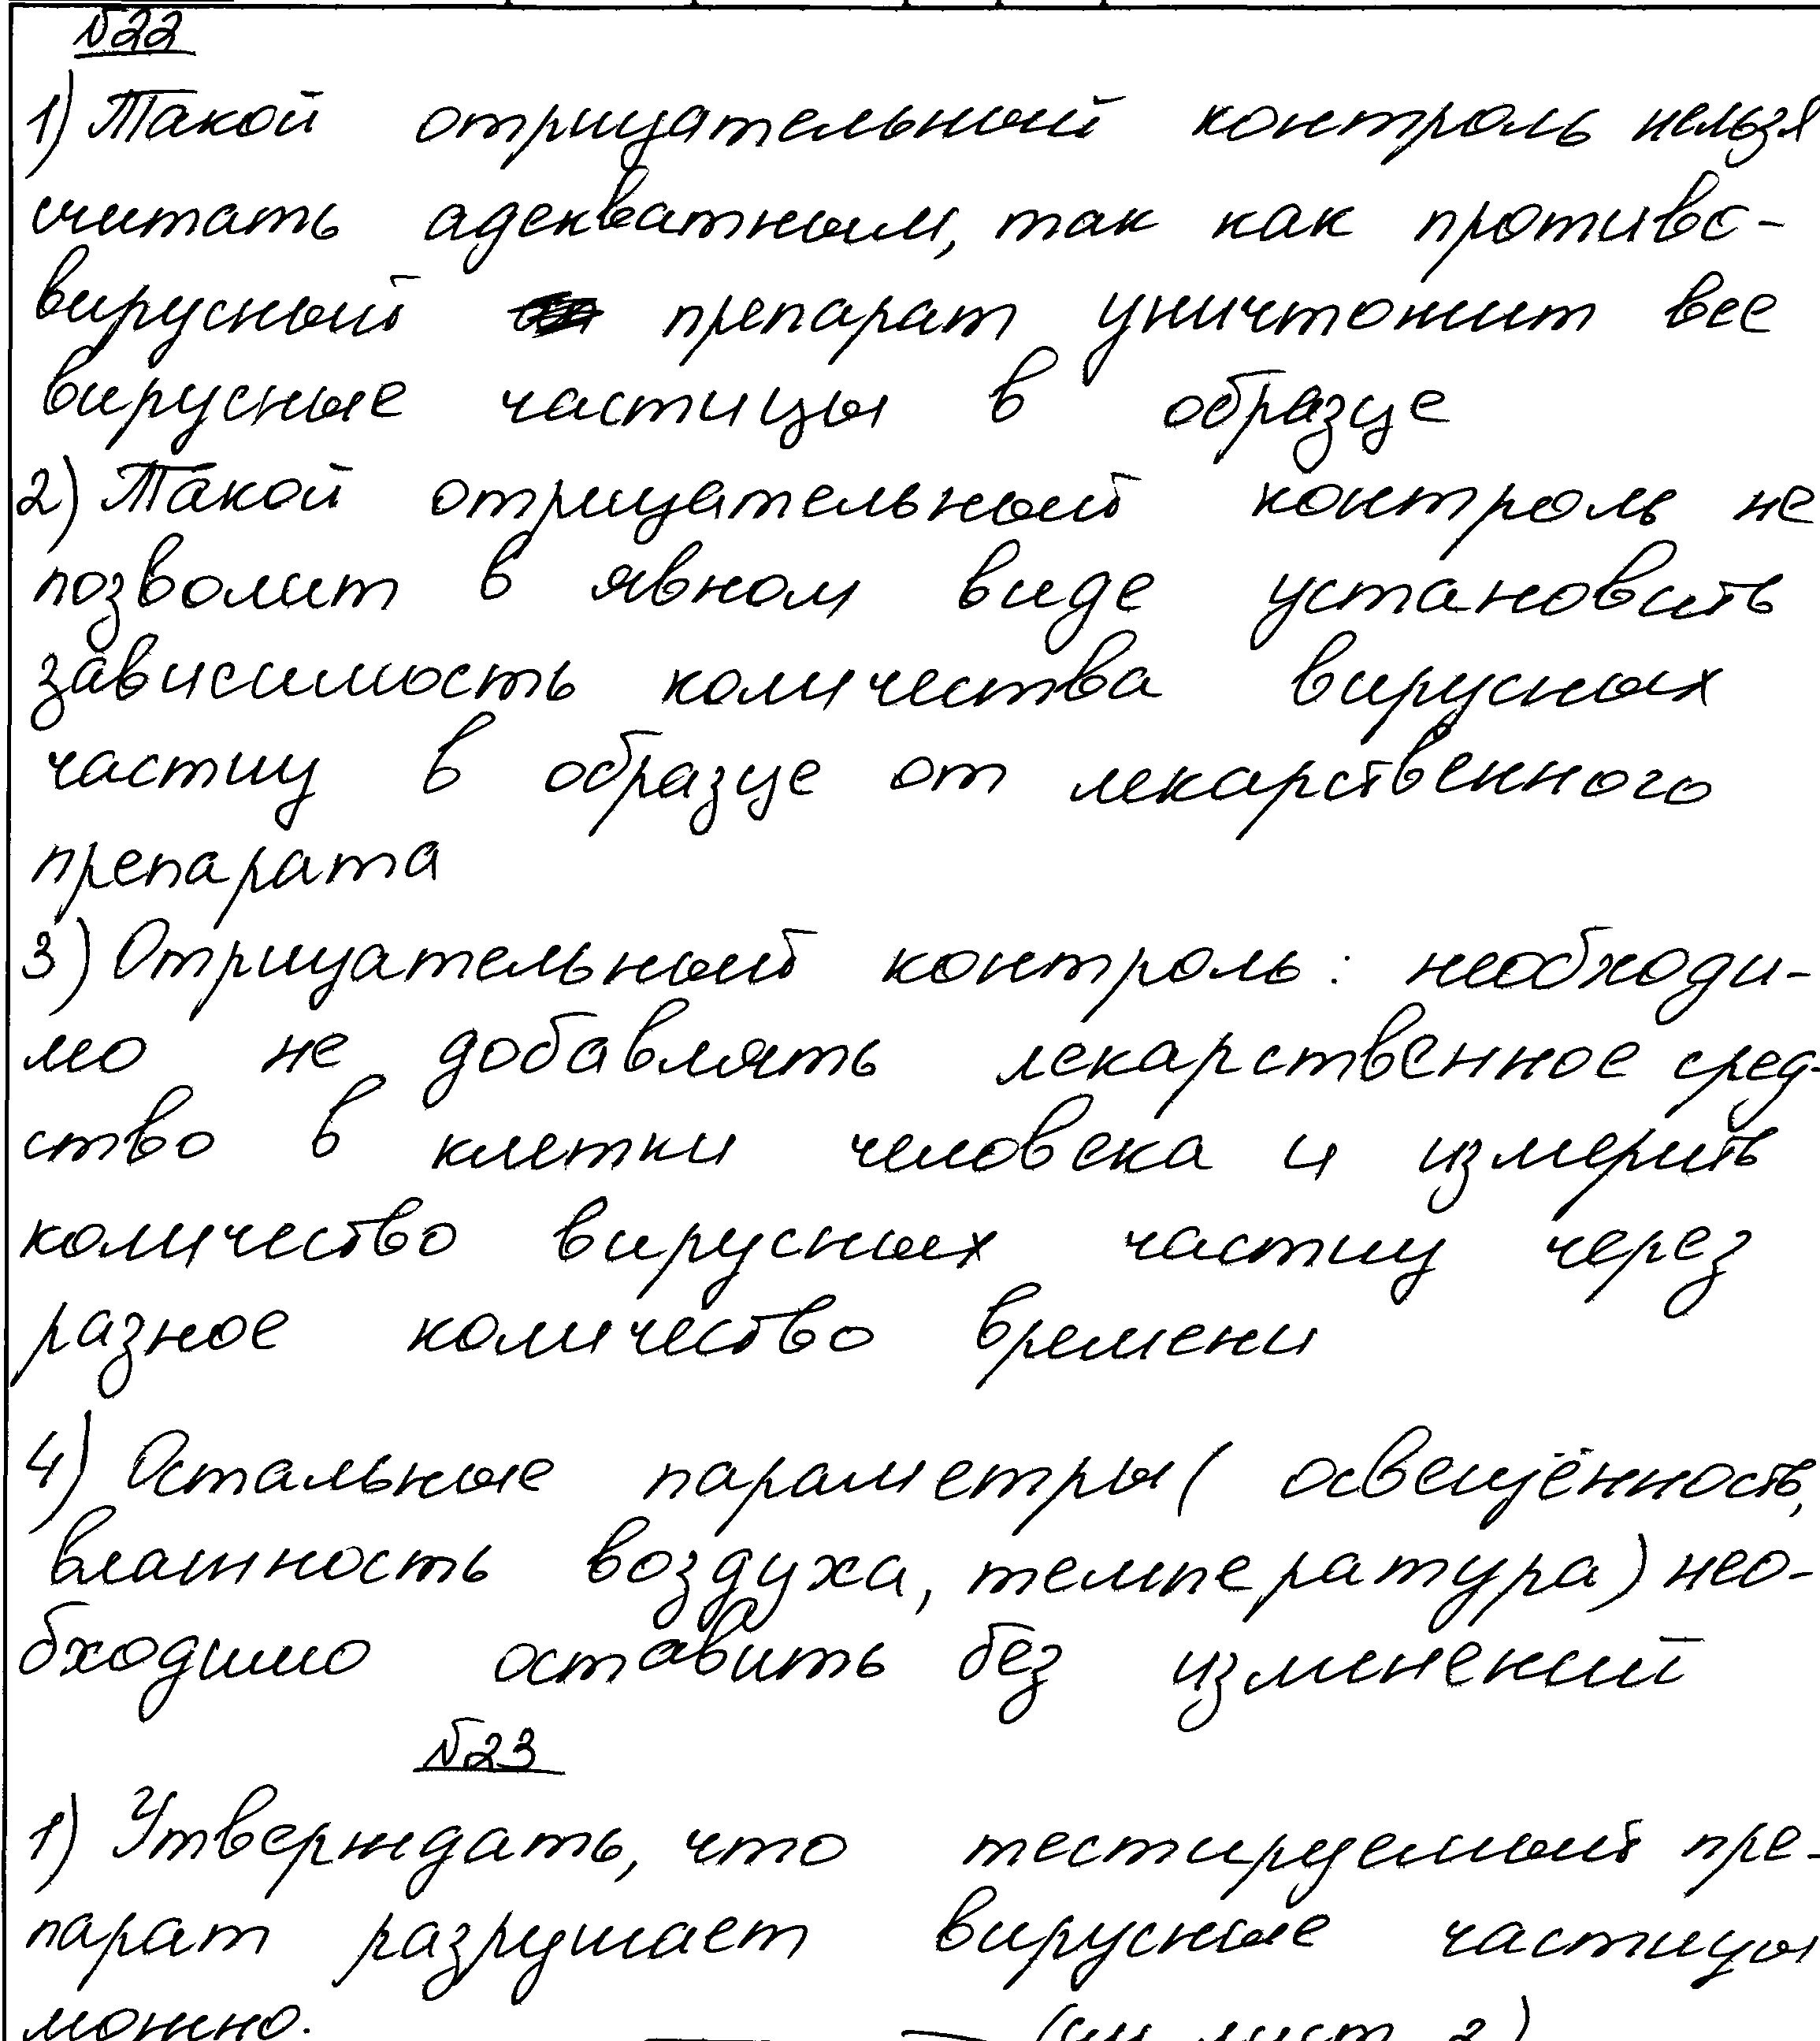 №22
1) Такой отрицательный контроль нельзя
считать адекватным, так как противо-
вирусный препарат уничтожит все
вирусные частицы в образце
2) Такой отрицательный контроль не
позволит в явном виде установить
зависимость количества вирусных
частиц в образце от лекарственного
препарата
3) Отрицательный контроль: необходи-
мо не добавлять лекарственное сред-
ство в клетки человека и измерить
количество вирусных частиц через
разное количество времени
4) Остальные параметры (освещённость,
влажность воздуха, температура) нео-
бходимо оставить без изменений
№23
1) Утверждать, что тестируемый пре-
парат разрушает вирусные частицы
можно. (см лист 2)